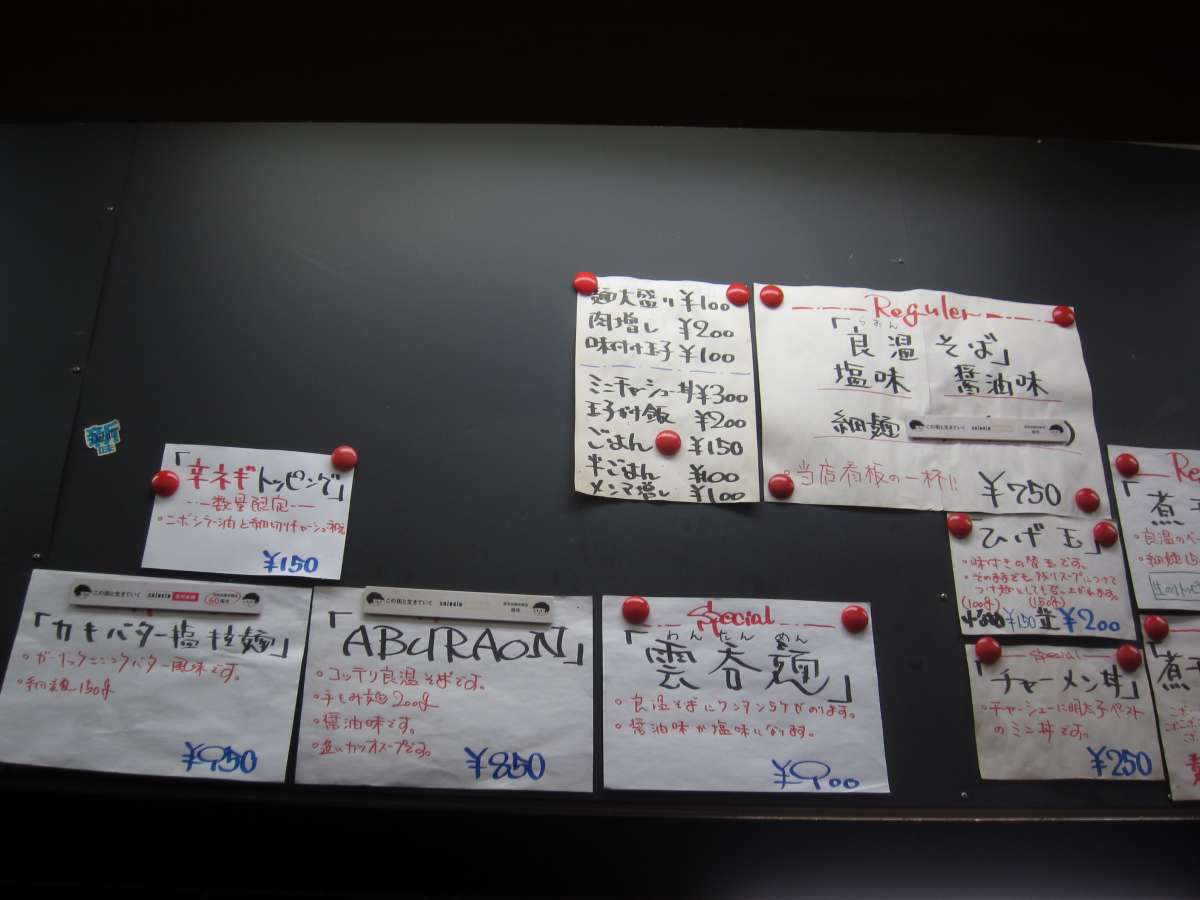 麺大盛り ¥100
肉増し ¥200
味付け玉子 ¥100
ミニチャーシュー丼 ¥300
玉子かけ飯 ¥200
ごはん ¥150
半ごはん ¥100
メンマ増し ¥100
Reguler
らおん
「良温そば」
塩味 醤油味
細麺
この街と生きていく
・当店看板の一杯!!
¥750
「辛ネギトッピング」
数量限定
¥150
この街と生きていく
「カキバター塩拉麺」
・ガーリックニンニクバター風味です。
・細麺150g
¥950
この街と生きていく
「ABURAON」
・コッテリ良温そばです。
・手もみ麺200g
・醤油味です。
・追いカツオスープです。
¥850
Special
わんたんめん
「雲呑麺」
・良温そばにワンタン5ケがのります。
・醤油味か塩味になります。
¥900
ひげ玉」
・味付きの替玉です。
・そのままでも残りスープにつけて
つけ麺としても召し上がれます。
(100g) (150g)
¥150 並 ¥200
Special
「チャーメン丼」
・チャーシューに明太子ペースト
のミニ丼です。
¥250
Re
「煮
・良温のベー
・細麺150
「煮